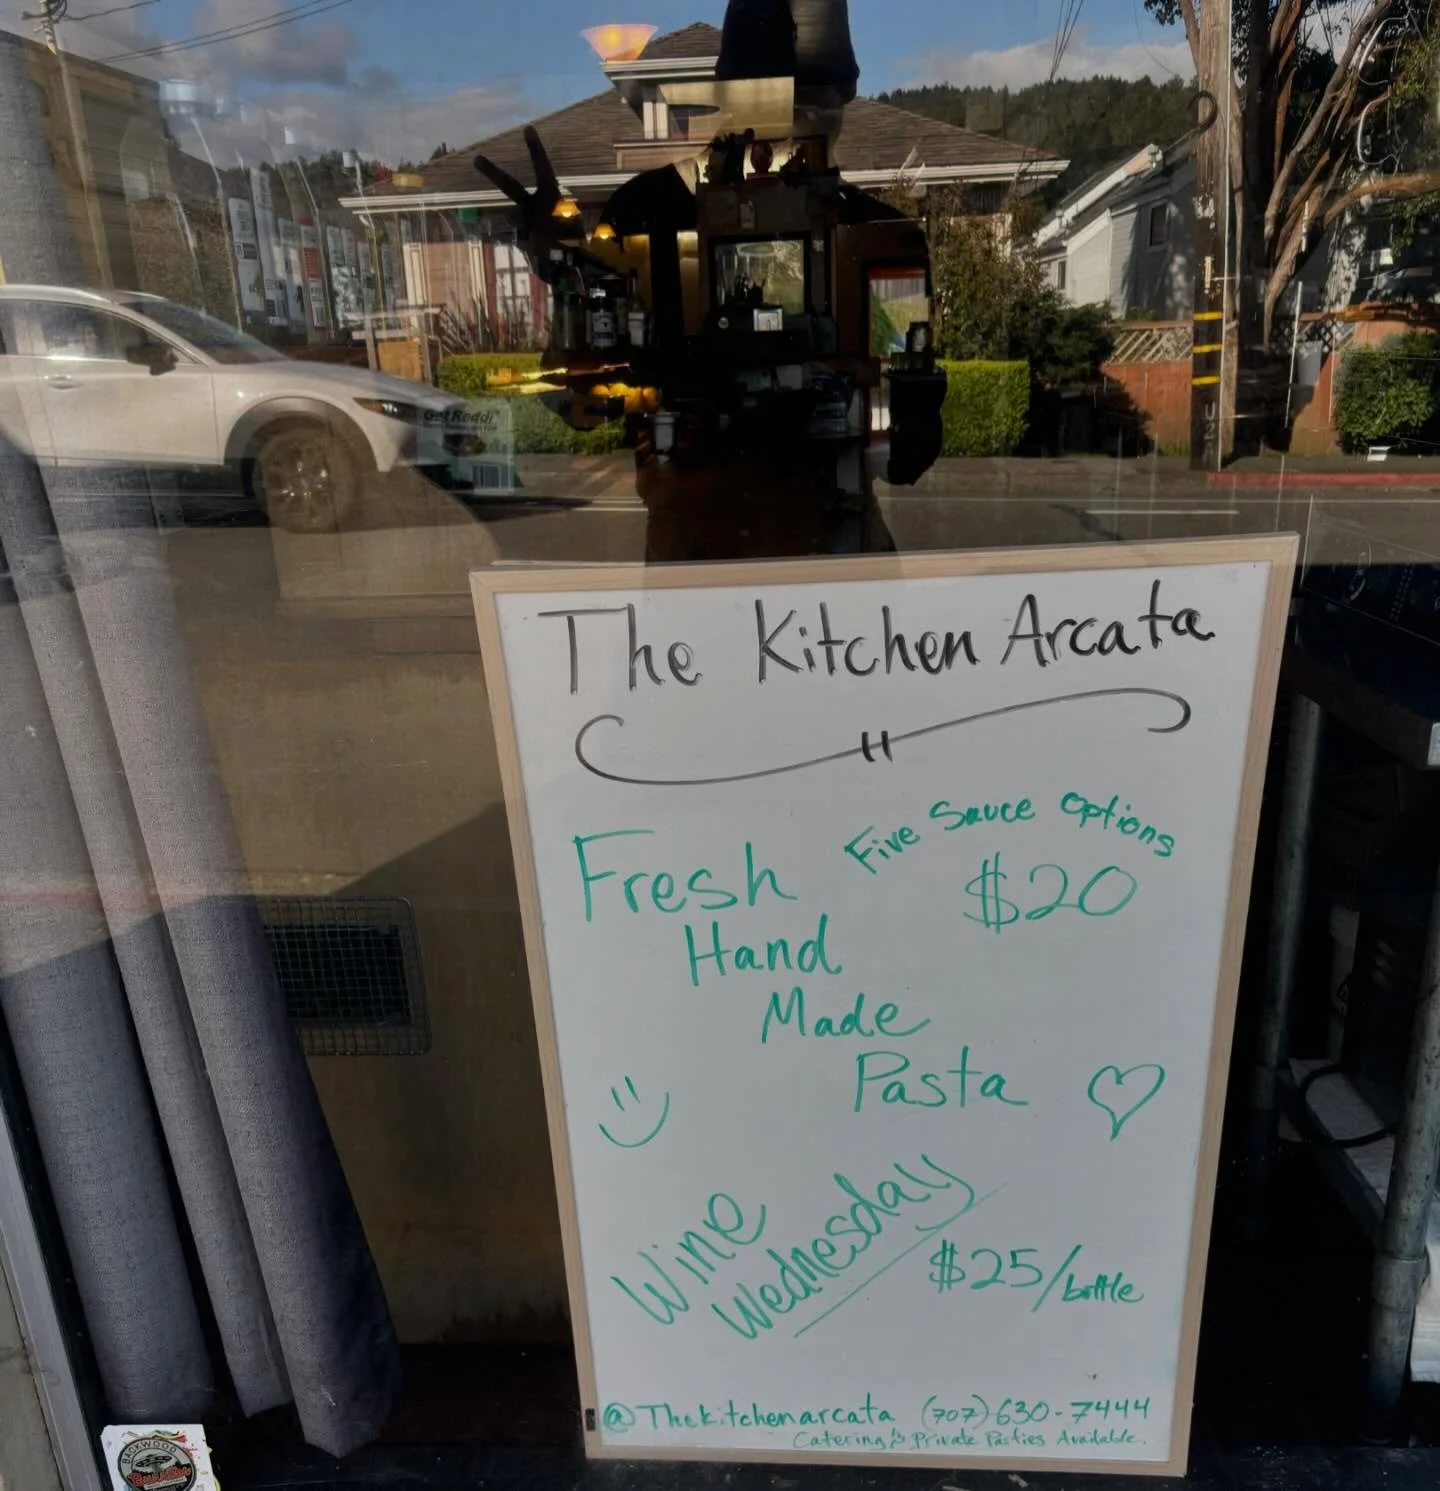 The Kitchen Arcata
Five Sauce Options
$20
Fresh
Hand
Made
Pasta
Wine
Wednesday
$25/bottle
@Thekitchenarcata (707)-630-7444
Catering & Private Parties Available.
GetReddi
BACKWOOD